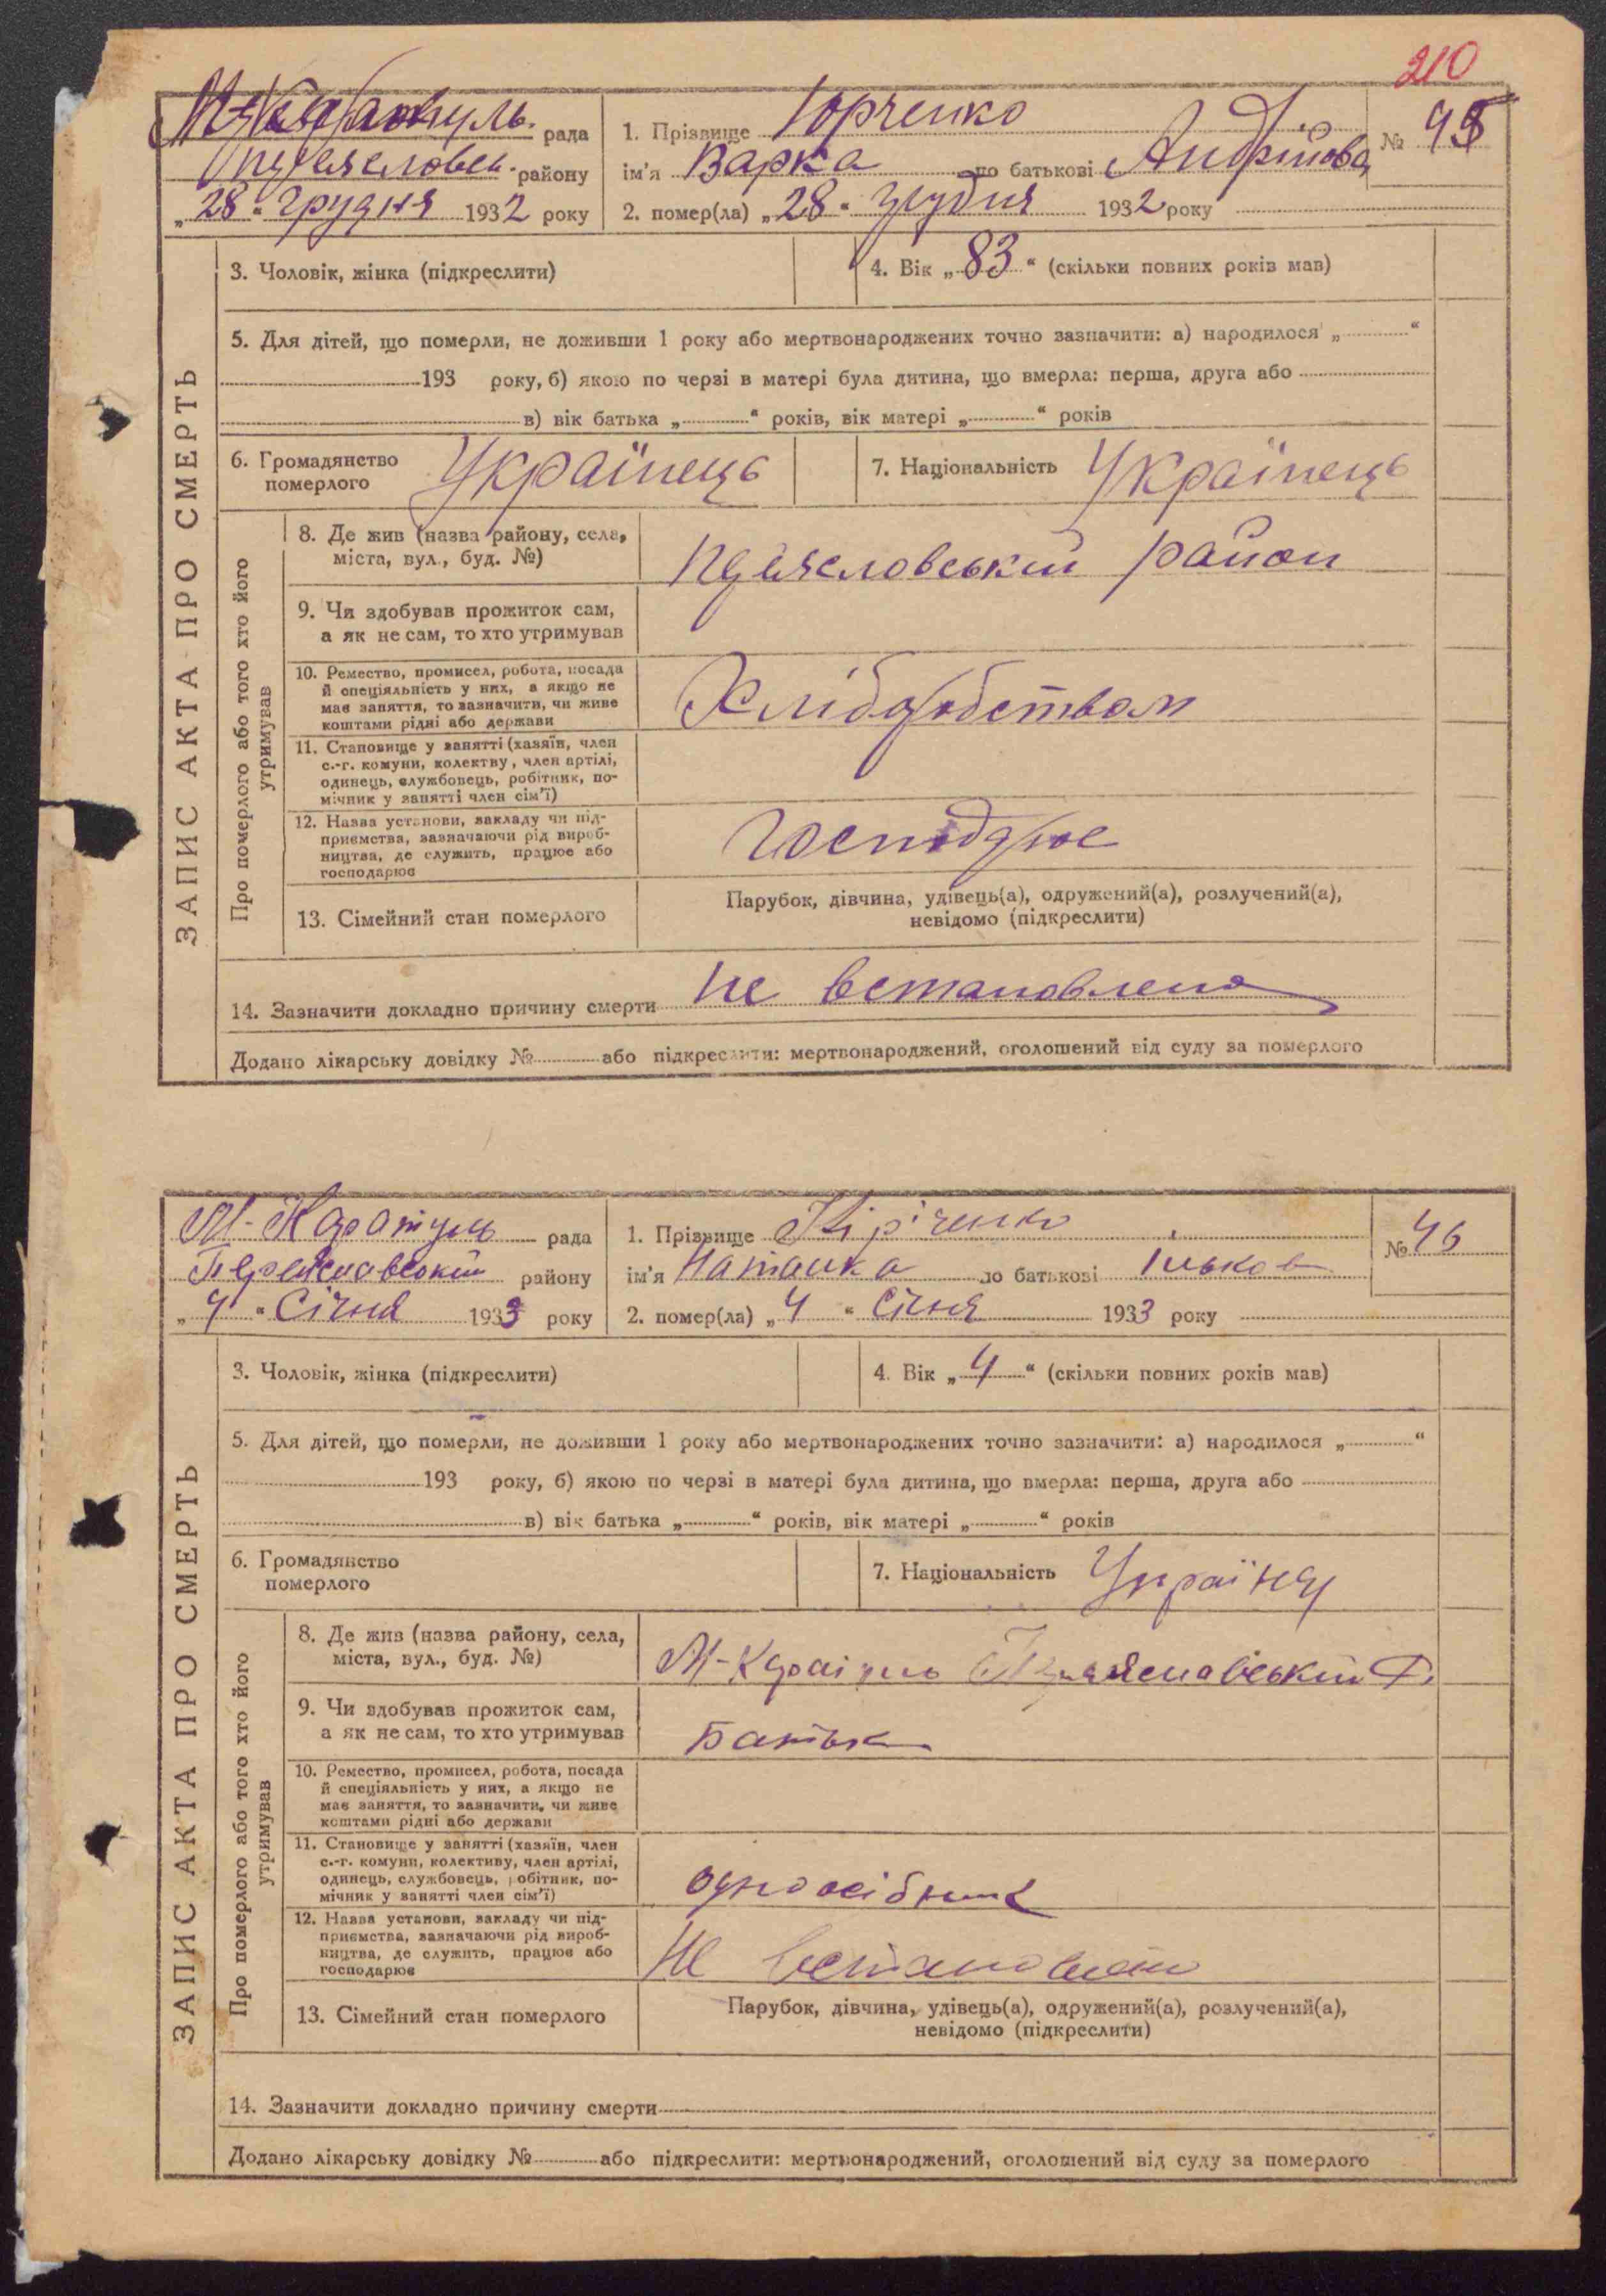 210
М-Каратуль рада
Переяславськ. району
„28“ грудня 1932 року
1. Прізвище Юрченко
ім'я Варка по батькові Андрійова
№ 45
2. помер(ла) „28“ грудня 1932 року
ЗАПИС АКТА ПРО СМЕРТЬ
3. Чоловік, жінка (підкреслити)
4. Вік „83“ (скільки повних років мав)
5. Для дітей, що померли, не доживши 1 року або мертвонароджених точно зазначити: а) народилося „ “
193 року, б) якою по черзі в матері була дитина, що вмерла: перша, друга або
в) вік батька „ “ років, вік матері „ “ років
6. Громадянство
померлого
Українець
7. Національність Українець
Про померлого або того хто його
утримував
8. Де жив (назва району, села,
міста, вул., буд. №)
район
9. Чи здобував прожиток сам,
а як не сам, то хто утримував
10. Ремество, промисел, робота, посада
й спеціяльність у них, а якщо не
має заняття, то зазначити, чи живе
коштами рідні або держави
Хліборобством
11. Становище у занятті (хазяїн, член
с.-г. комуни, колектву, член артілі,
одинець, службовець, робітник, по-
мічник у занятті член сім'ї)
12. Назва установи, закладу чи під-
приємства, зазначаючи рід вироб-
ництва, де служить, працює або
господарює
13. Сімейний стан померлого
Парубок, дівчина, удівець(а), одружений(а), розлучений(а),
невідомо (підкреслити)
14. Зазначити докладно причину смерти не встановлена
Додано лікарську довідку № або підкреслити: мертвонароджений, оголошений від суду за померлого
М-Каратуль рада
Переяславський району
„4“ Січня 1933 року
1. Прізвище Кіріченко
ім'я Наталка по батькові Ільков
№ 46
2. помер(ла) „4“ Січня 1933 року
ЗАПИС АКТА ПРО СМЕРТЬ
3. Чоловік, жінка (підкреслити)
4. Вік „4“ (скільки повних років мав)
5. Для дітей, що померли, не доживши 1 року або мертвонароджених точно зазначити: а) народилося „ “
193 року, б) якою по черзі в матері була дитина, що вмерла: перша, друга або
в) вік батька „ “ років, вік матері „ “ років
6. Громадянство
померлого
7. Національність
Про померлого або того хто його
утримував
8. Де жив (назва району, села,
міста, вул., буд. №)
М-Каратуль Переяславський р.
9. Чи здобував прожиток сам,
а як не сам, то хто утримував
Батько
10. Ремество, промисел, робота, посада
й спеціяльність у них, а якщо не
має заняття, то зазначити, чи живе
коштами рідні або держави
11. Становище у занятті (хазяїн, член
с.-г. комуни, колективу, член артілі,
одинець, службовець, робітник, по-
мічник у занятті член сім'ї)
одноосібник
12. Назва установи, закладу чи під-
приємства, зазначаючи рід вироб-
ництва, де служить, працює або
господарює
Не встановлено
13. Сімейний стан померлого
Парубок, дівчина, удівець(а), одружений(а), розлучений(а),
невідомо (підкреслити)
14. Зазначити докладно причину смерти
Додано лікарську довідку № або підкреслити: мертвонароджений, оголошений від суду за померлого